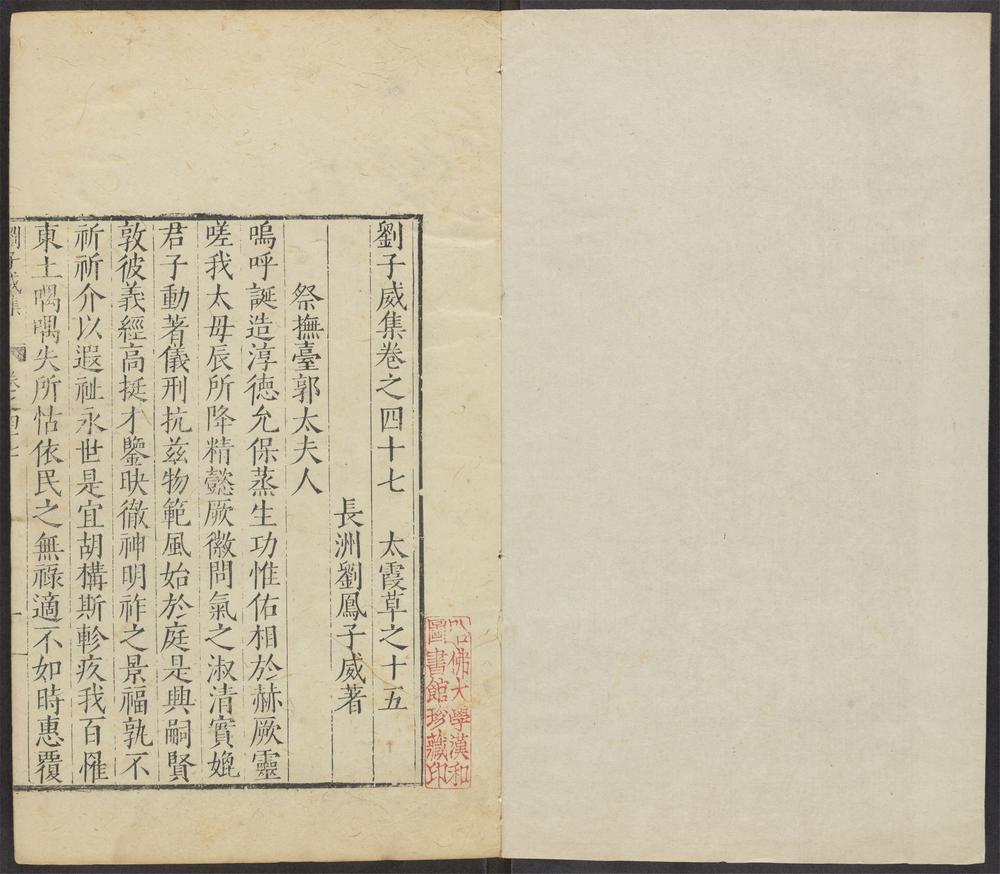 劉子威集卷之四十七　太霞草之十五
長洲劉鳳子威著
祭撫臺郭太夫人
嗚呼誕造淳德允保蒸生功惟佑相於赫厥靈
嗟我太毋辰所降精懿厥徽問氣之淑清實媲
君子動著儀刑抗茲物範風始於庭是興嗣賢
敦彼義經高挺才鑒映徹神明祚之景福孰不
祈祈介以遐祉永世是宜胡構斯軫疚我百罹
東土喁喁失所怙依民之無祿適不如時惠覆
劉子威集
卷之四十七
一
佛大學漢和
圖書館珍藏印